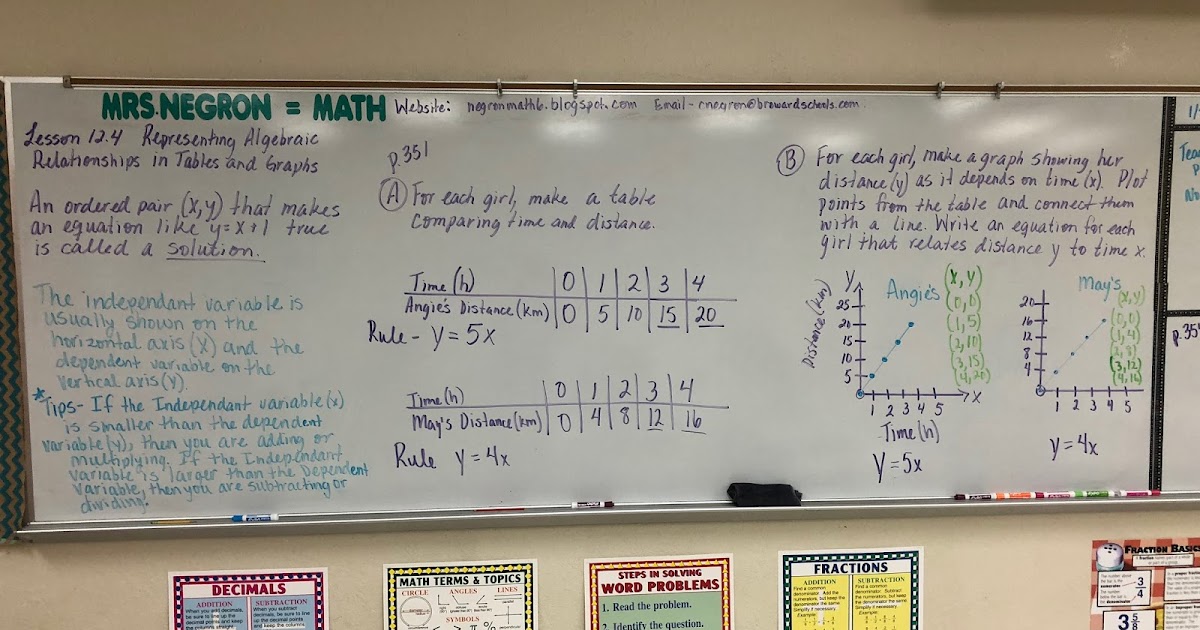 MRS. NEGRON = MATH Website: negronmath6.blogspot.com Email - cnegron@browardschools.com
Lesson 12.4 Representing Algebraic
Relationships in Tables and Graphs
An ordered pair (x,y) that makes
an equation like y=x+1 true
is called a solution.
The independant variable is
usually shown on the
horizontal axis (x) and the
dependent variable on the
vertical axis (y).
*Tips- If the Independant variable (x)
is smaller than the dependent
variable (y), then you are adding or
multiplying. If the Independant
variable is larger than the Dependent
variable, then you are subtracting or
dividing.
p.351
A For each girl, make a table
comparing time and distance.
Time (h) 0 1 2 3 4
Angie's Distance (km) 0 5 10 15 20
Rule - y = 5x
Time (h) 0 1 2 3 4
May's Distance (km) 0 4 8 12 16
Rule y = 4x
B For each girl, make a graph showing her
distance (y) as it depends on time (x). Plot
points from the table and connect them
with a line. Write an equation for each
girl that relates distance y to time x.
Distance (km)
y
25
20
15
10
5
1 2 3 4 5
x
Time (h)
y = 5x
Angie's
(x,y)
(0,0)
(1,5)
(2,10)
(3,15)
(4,20)
May's
(x,y)
(0,0)
(1,4)
(2,8)
(3,12)
(4,16)
20
16
12
8
4
1 2 3 4 5
y = 4x
p.35
DECIMALS
ADDITION SUBTRACTION
MATH TERMS & TOPICS
CIRCLE ANGLES LINES
SYMBOLS
STEPS IN SOLVING
WORD PROBLEMS
1. Read the problem.
2. Identify the question.
FRACTIONS
ADDITION SUBTRACTION
Find a common
denominator. Add the
numerators, but keep
the denominator the same.
Simplify if necessary.
FRACTION BASICS
3
4
3